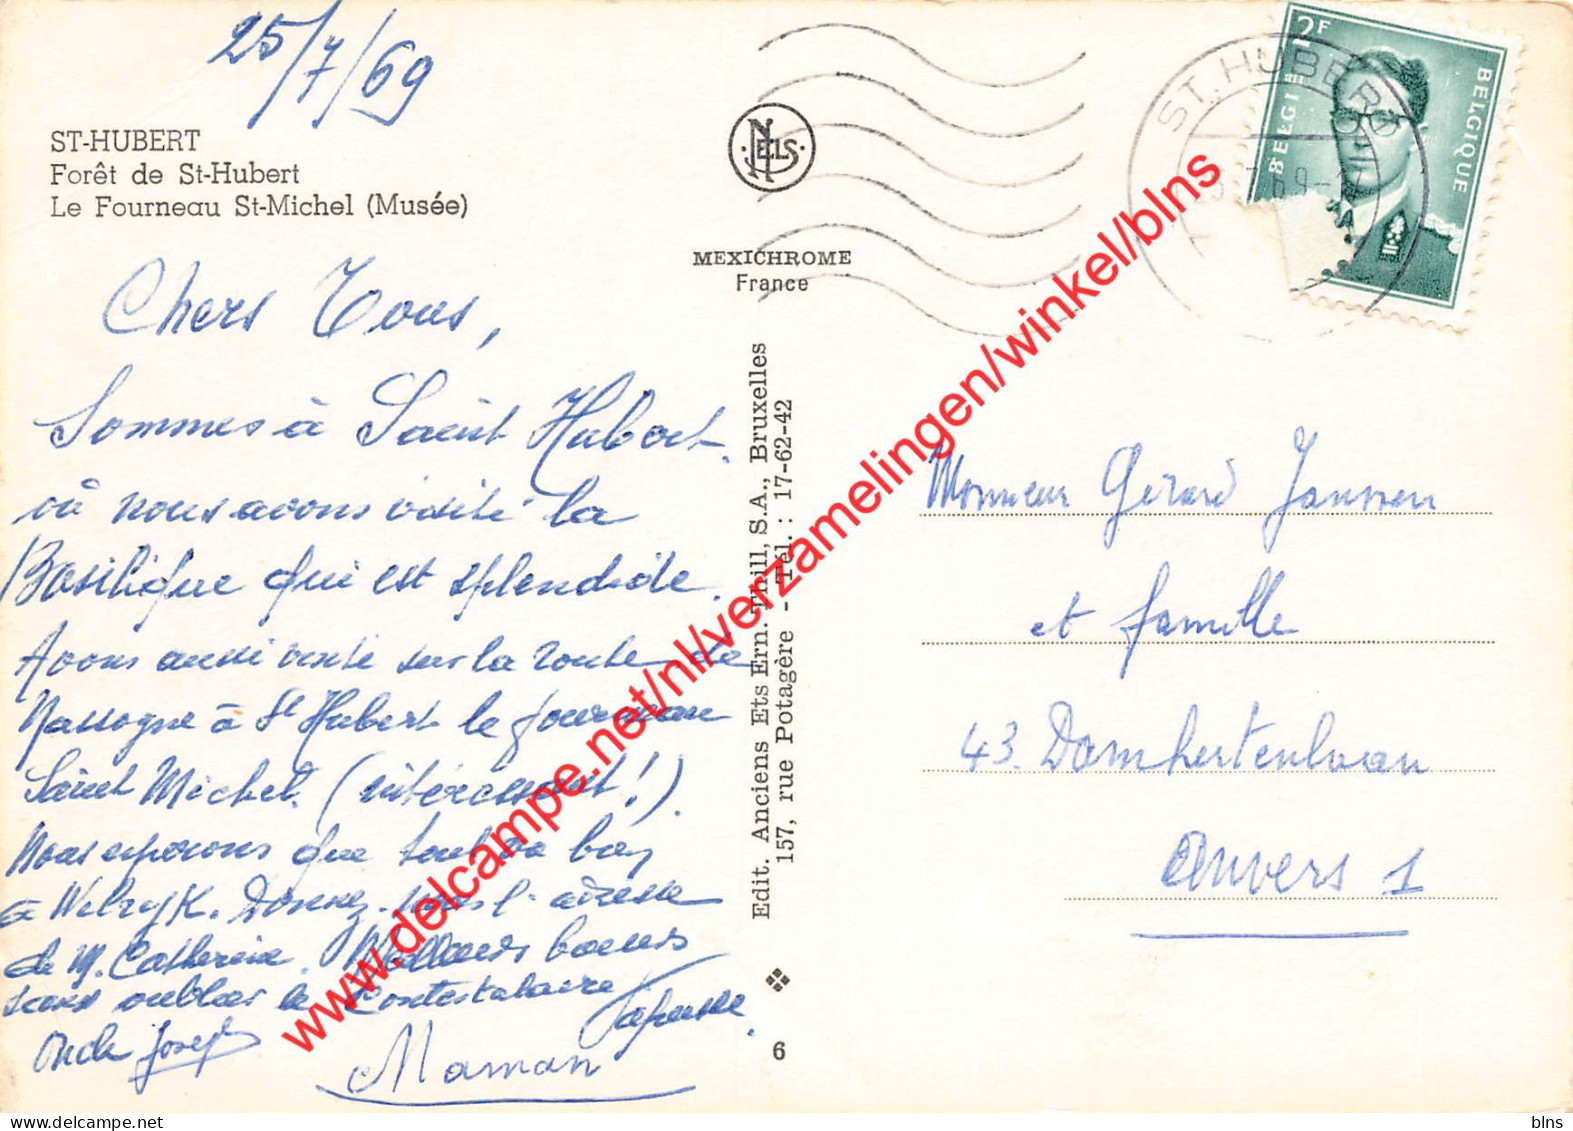 25/7/69
ST-HUBERT
Forêt de St-Hubert
Le Fourneau St-Michel (Musée)
Chers Tous,
Sommes à Saint Hubert
où nous avons visité la
Basilique qui est splendide.
Avons aussi visité sur la route de
Nassogne à St Hubert le fourneau
Saint Michel. (intéressant!).
Nous espérons que tout va bien
à Wilryk. Donnez-nous l'adresse
de M. Catherine. Meilleurs baisers
sans oublier le Contestataire
Oncle Joseph
Maman
NELS
MEXICHROME
France
Edit. Anciens Ets Ern. Thill, S.A., Bruxelles
157, rue Potagère - Tél. : 17-62-42
6
ST. HUBERT
69
2F
BELGIE
BELGIQUE
Monsieur Gérard Janssen
et famille
43. Damhertenlaan
Anvers 1
www.delcampe.net/nl/verzamelingen/winkel/blns
blns